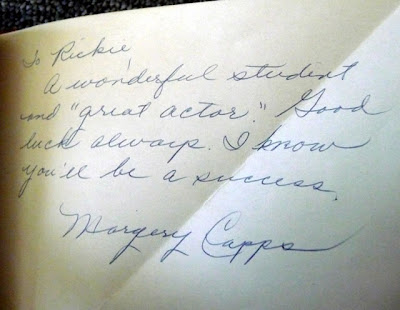 To Rickie,
A wonderful student
and "great actor." Good
luck always. I know
you'll be a success.
Margery Capps